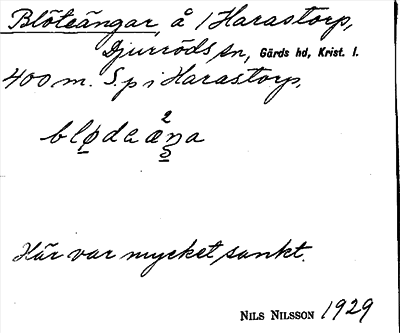 Blöteängar, å 1 Harastorp,
Djurröds sn, Gärds hd, Krist. l.
400 m. S. p i Harastorp.
blødaæŋa
Här var mycket sankt.
NILS NILSSON 1929